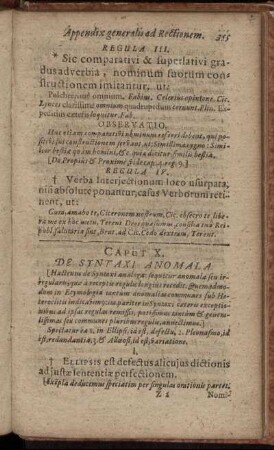 Appendix generalis ad Rectionem. 355
REGULA III.
* Sic comparativi & superlativi gra-
dus adverbia, nominum suorum con-
structionem imitantur. ut:
Pulcherrime omnium, Fabius. Celerius opinione, Cic.
omnium quadrupedum cernunt, Plin.
loquitur, Fab.
OBSERVATIO.
Huc etiam comparativi adnominum referri debent, qui po-
constructionem servant. ut: Simillimus igno: Si-
milior bestia quàm homini, & quia dicitur similis bestia.
(De Propius & Proxime fide cap. 4. reg. 9.)
REGULA IV.
† Verba Interjectionum loco usurpata,
nisi absolute ponantur, casus Verborum reti-
nent, ut:
Cura, amabo te, Ciceronem nostrum, Cic. obsecro te libe-
ra me ex hoc metu, Terent. consilia tua Rei-
publ. salutaria sint, Brut. ad Cic. Cedo dextram, Terent.
CAPUT X.
DE SYNTAXI ANOMALA.
(Hactenus de Syntaxi analoga: sequitur anomala seu ir-
regularis, quæ à receptis regulis longius recedit. Quemadmo-
dum in Etymologia vocum anomalias communes sub He-
teroclitis indicavimus; ita pariter in Syntaxi cetera exceptio-
nibus ad ipsas regulas remissis, potissimas tantùm & genera-
lissimas seu communes plurium regulas, annectimus.)
Spectatur ea 1. in Ellipsi, id est, defectu, 2. Pleonasmo, id
est, redundantia, 3. & Allæosi, id est, variatione.
I.
† ELLIPSIS est defectus alicujus dictionis
ad justæ sententiæ perfectionem.
(Exempla deducemus speciatim per singulas orationis partes,
Z 2 Nom-